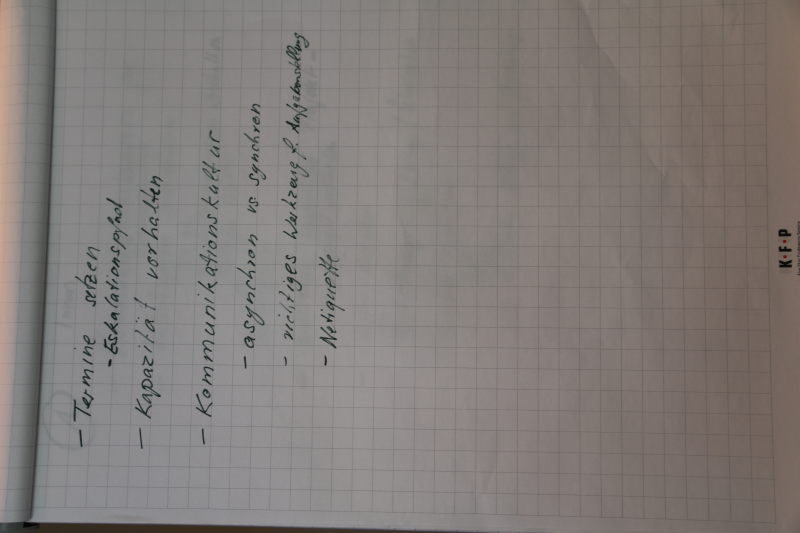 – Termine setzen
- Eskalationspfad
– Kapazität vorhalten
– Kommunikationskultur
– asynchron vs synchron
- richtiges Werkzeug f. Aufgabenstellung
- Netiquette
K·F·P